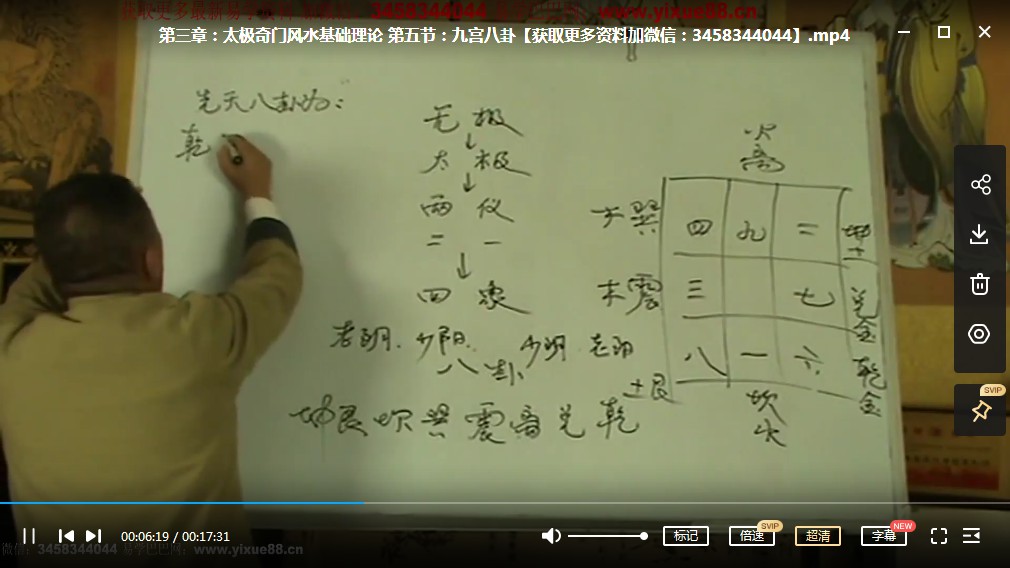 获取更多最新易学资料 加微信：3458344044 易学巴巴网：www.yixue88.cn
第三章：太极奇门风水基础理论 第五节：九宫八卦【获取更多资料加微信：3458344044】.mp4
先天八卦为：
乾
无极
↓
太极
↓
两仪
二 一
↓
四象
老阴. 少阳. 少阴. 老阳
八卦
坤艮坎巽震离兑乾
火
离
木巽 四 九 二 坤土
木震 三 七 兑金
土艮 八 一 六 乾金
坎
水
SVIP
00:06:19 / 00:17:31
标记
倍速
SVIP
超清
字幕
NEW
微信：3458344044 易学巴巴网：www.yixue88.cn